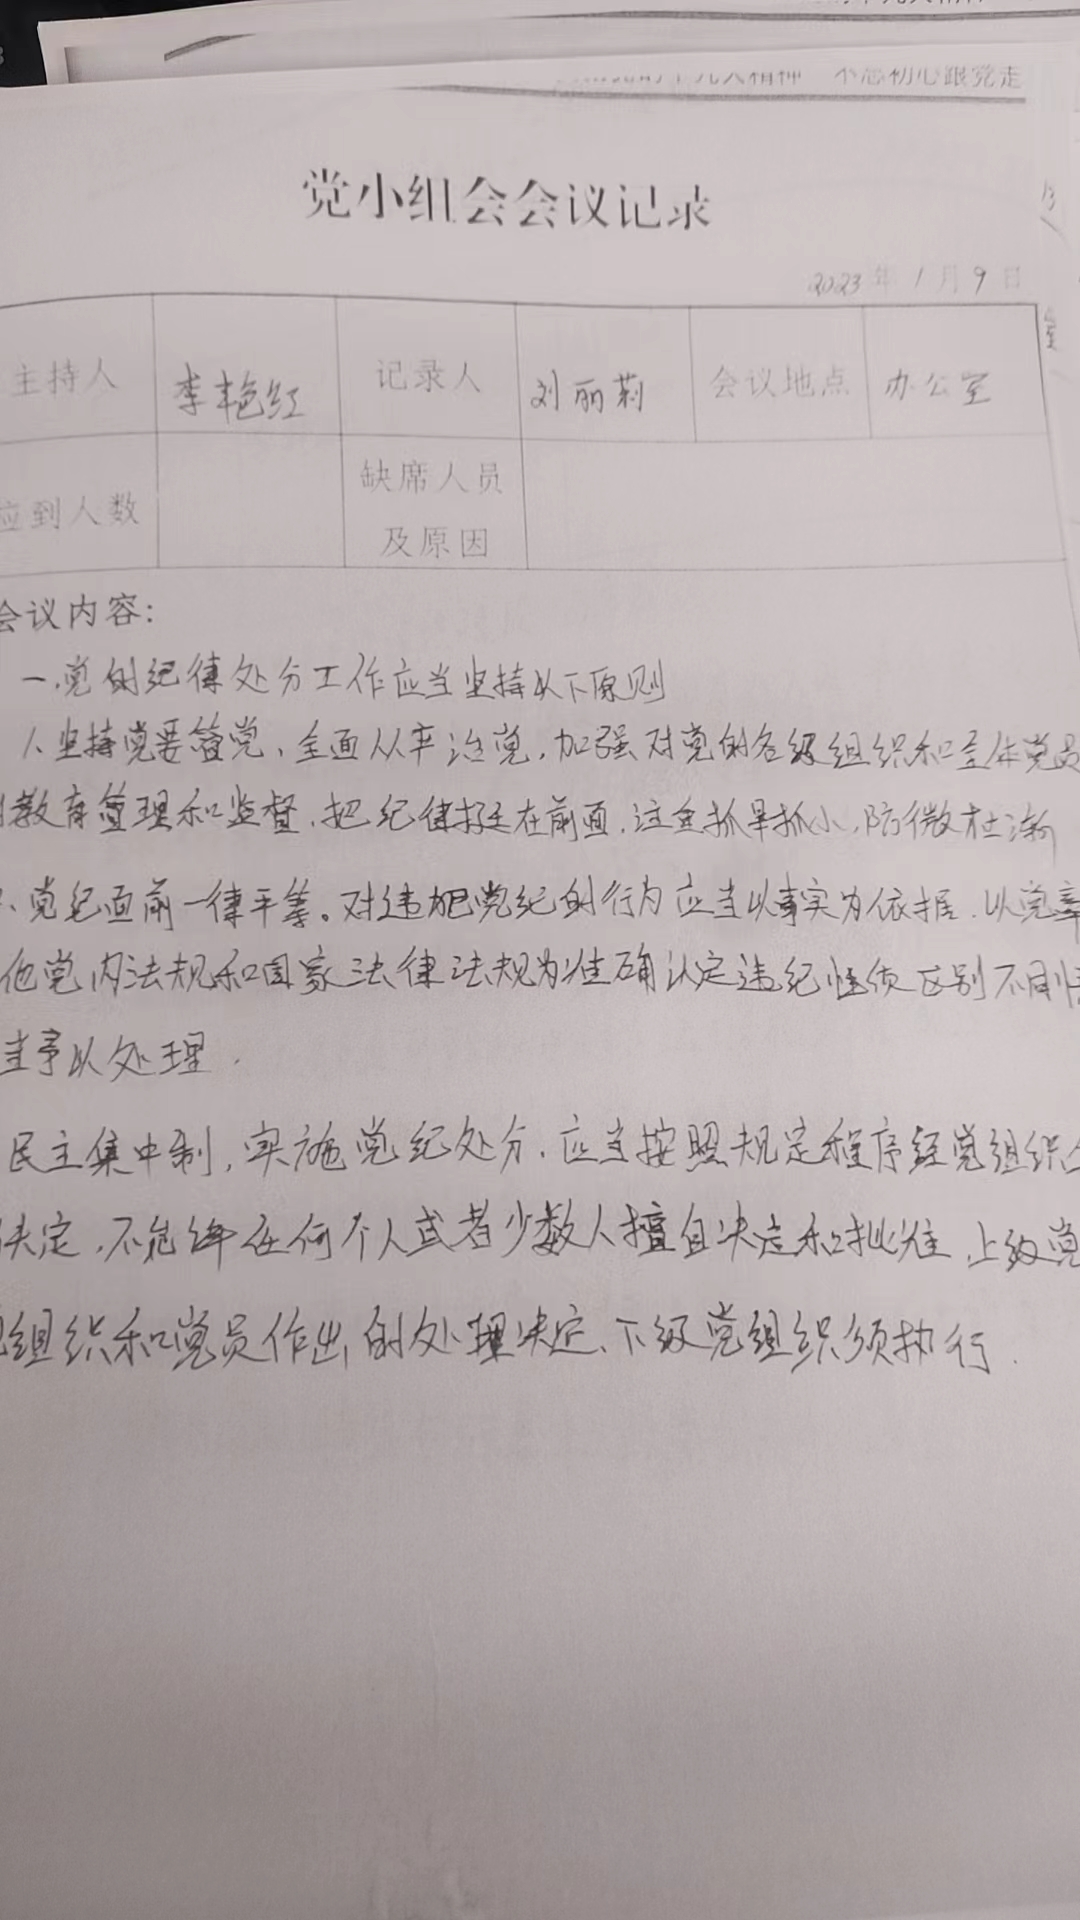 十九大精神 不忘初心跟党走
党小组会会议记录
2023年1月9日
主持人 李艳红 记录人 刘丽莉 会议地点 办公室
应到人数 缺席人员
及原因
会议内容：
一.党的纪律处分工作应当坚持以下原则
1.坚持党要管党、全面从严治党,加强对党的各级组织和全体党员
教育管理和监督.把纪律挺在前面.注重抓早抓小.防微杜渐
2、党纪面前一律平等。对违犯党纪的行为应当以事实为依据.以党章
他党内法规和国家法律法规为准确认定违纪性质区别不同情
当予以处理.
民主集中制,实施党纪处分.应当按照规定程序经党组织
决定.不允许任何个人或者少数人擅自决定和批准.上级党
组织和党员作出的处理决定、下级党组织须执行.